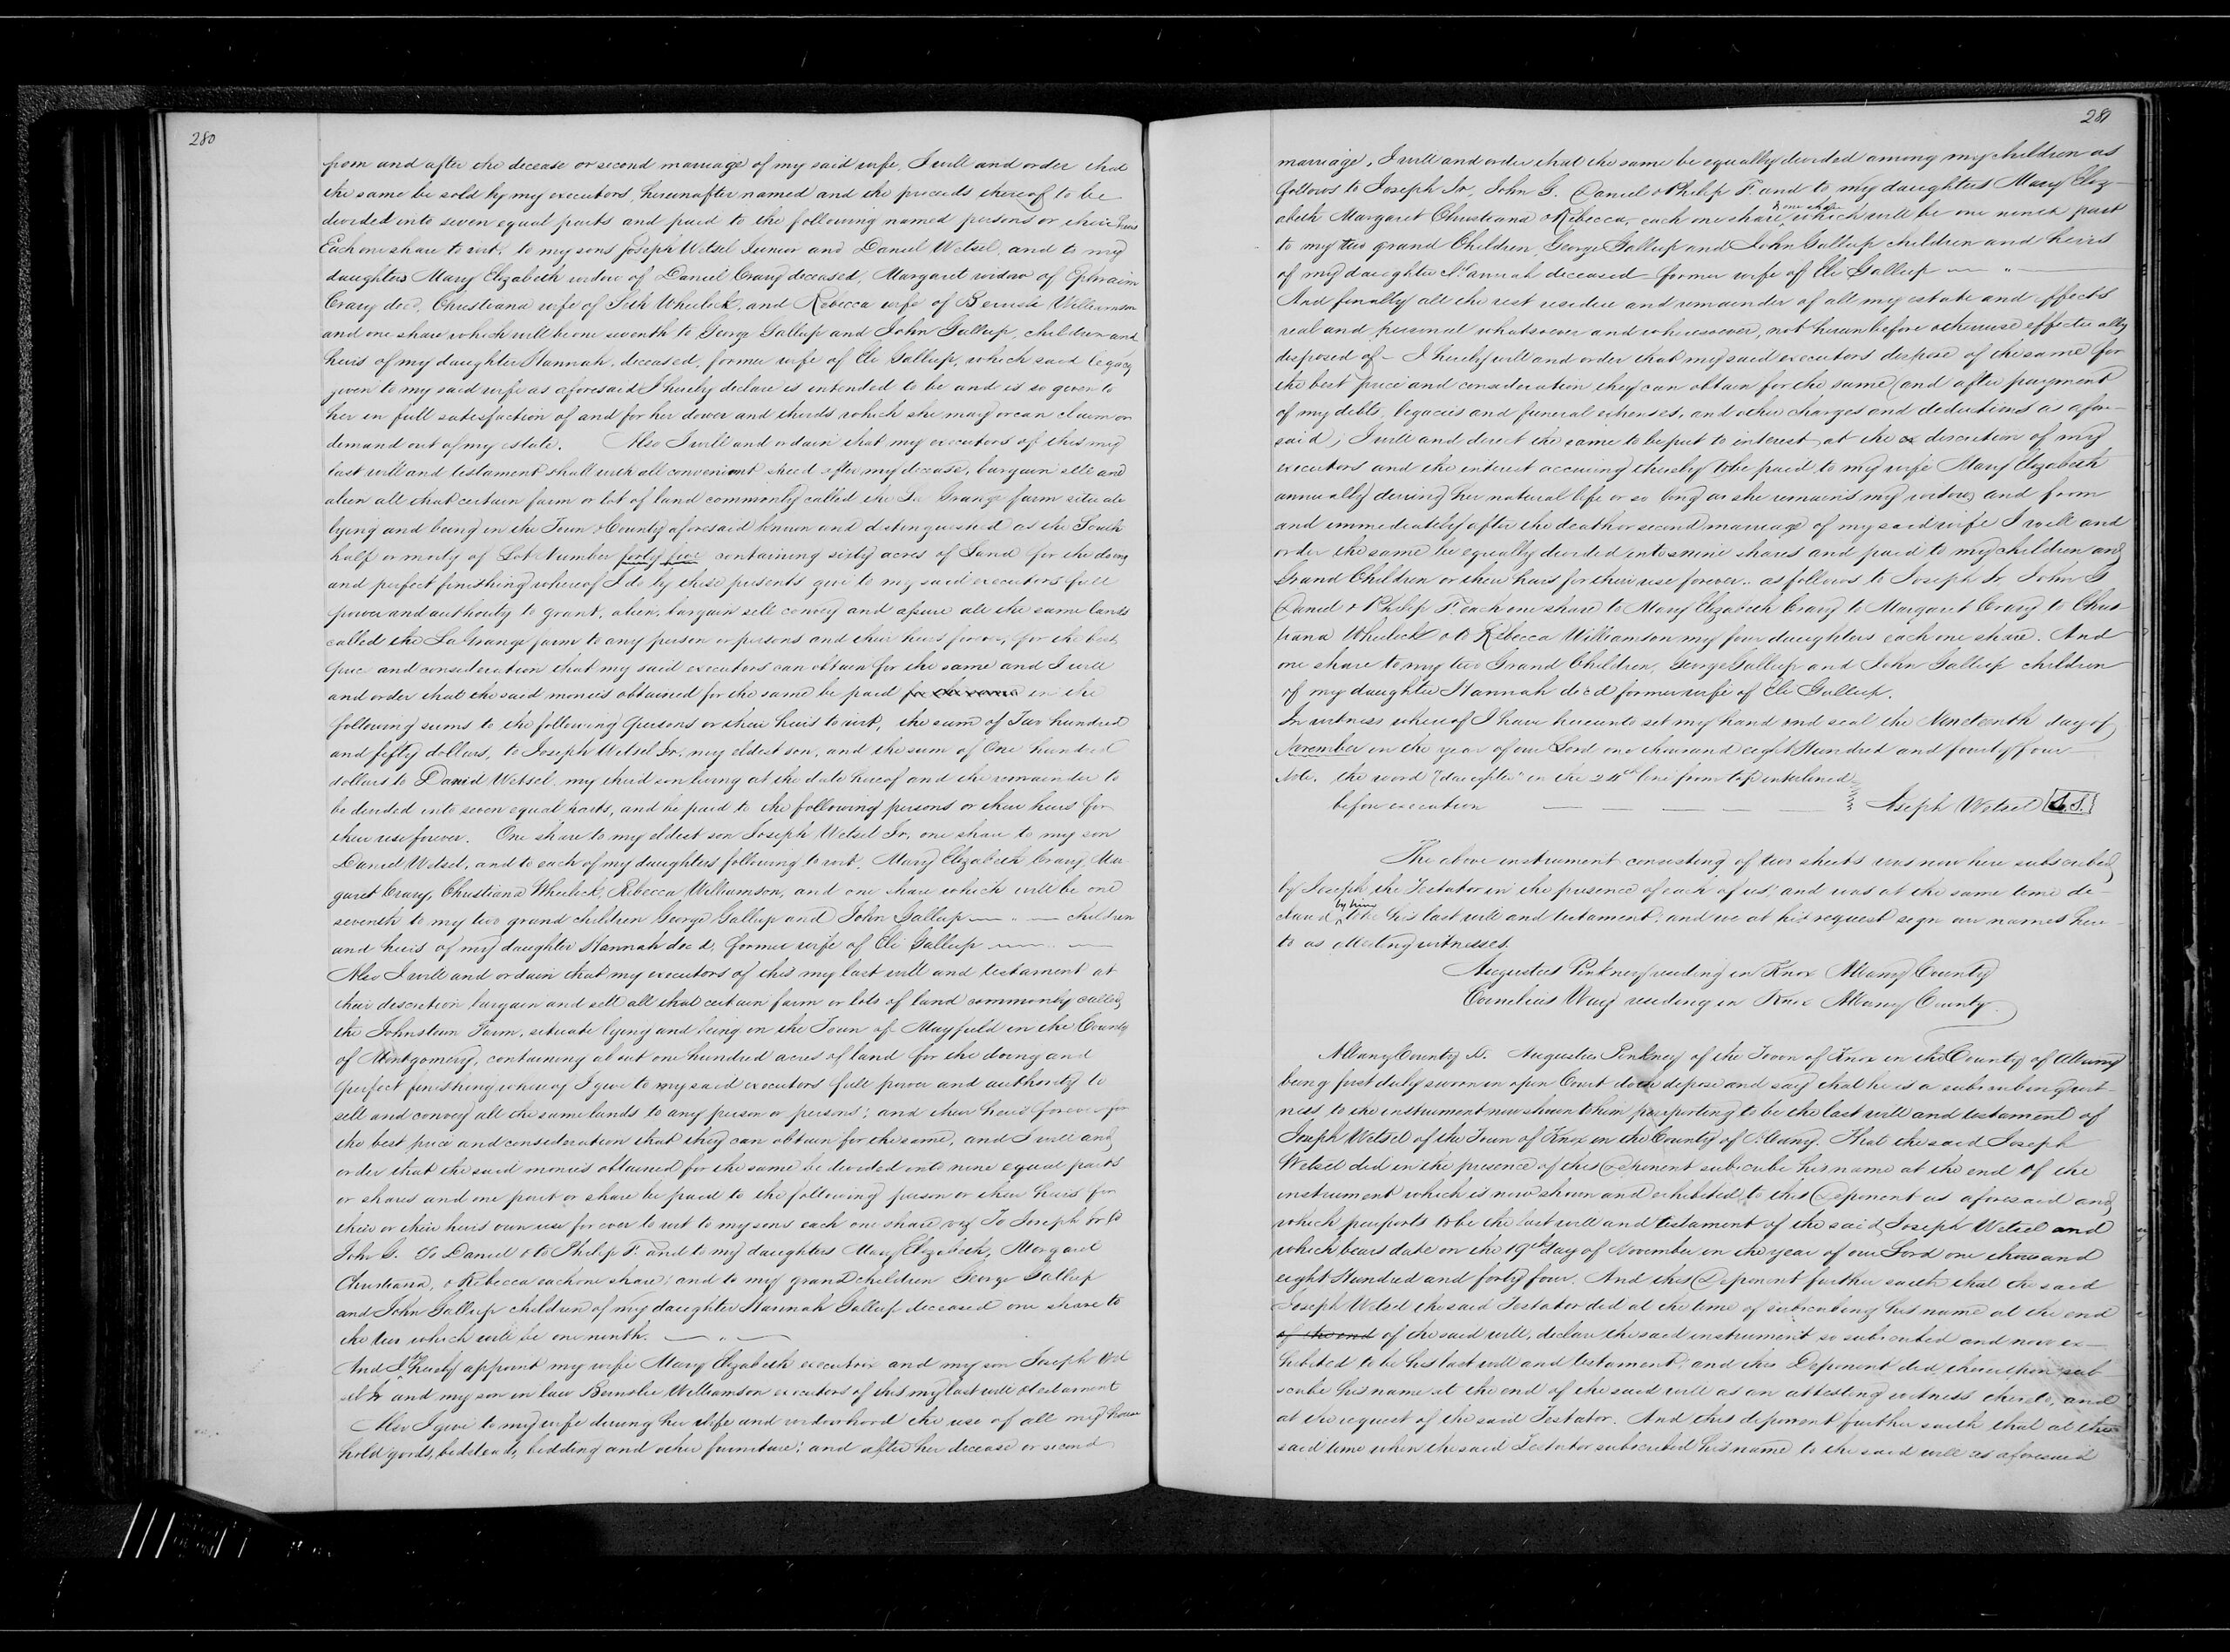 280
from and after the decease or second marriage of my said wife, I will and order that
the same be sold by my executors, hereinafter named and the proceeds thereof to be
divided into seven equal parts and paid to the following named persons or their heirs
Each one share to wit, to my sons Joseph Wetsel Junior and Daniel Wetsel, and to my
daughters Mary Elizabeth widow of Daniel Crary deceased, Margaret widow of Ephraim
Crary decd, Christiana wife of Seth Wheelock, and Rebecca wife of Bernslie Williamson
and one share which will be one seventh to George Gallup and John Gallup, children and
heirs of my daughter Hannah, deceased, former wife of Eli Gallup, which said legacy
given to my said wife as aforesaid I hereby declare is intended to be and is so given to
her in full satisfaction of and for her dower and thirds which she may or can claim or
demand out of my estate. Also I will and ordain that my executors of this my
last will and testament shall with all convenient speed after my decease, bargain sell and
alien all that certain farm or lot of land commonly called the La Grange farm situate
lying and being in the Town & County aforesaid known and distinguished as the South
half or moity of Lot Number forty five containing sixty acres of Land for the doing
and perfect finishing whereof I do by these presents give to my said executors full
power and authority to grant, alien, bargain sell convey and assure all the same lands
called the La Grange farm to any person or persons and their heirs forever, for the best
price and consideration that my said executors can obtain for the same and I will
and order that the said monies obtained for the same be paid for the same in the
following sums to the following persons or their heirs to wit, the sum of Two hundred
and fifty dollars, to Joseph Wetsel Jr. my eldest son, and the sum of One hundred
dollars to David Wetsel my third son living at the date hereof and the remainder to
be divided into seven equal parts, and be paid to the following persons or their heirs for
their use forever. One share to my eldest son Joseph Wetsel Jr, one share to my son
Daniel Wetsel, and to each of my daughters following to wit. Mary Elizabeth Crary, Mar
garet Crary, Christiana Wheelock, Rebecca Williamson, and one share which will be one
seventh to my two grand children George Gallup and John Gallup — " — children
and heirs of my daughter Hannah decd, former wife of Eli Gallup
Also I will and ordain that my executors of this my last will and testament at
their descretion bargain and sell all that certain farm or lots of land commonly called
the Johnstown Farm, situate lying and being in the Town of Mayfield in the County
of Montgomery, containing about one hundred acres of land for the doing and
perfect finishing whereof I give to my said executors full power and authority to
sell and convey all the same lands to any person or persons; and their heirs forever for
the best price and consideration that they can obtain for the same, and I will and
order that the said monies obtained for the same be divided into nine equal parts
or shares and one part or share be paid to the following person or their heirs for
their or their heirs own use for ever to wit to my sons each one share viz To Joseph Jr to
John G. To Daniel & to Philip F. and to my daughters Mary Elizabeth, Margaret
Christiana, & Rebecca each one share; and to my grand children George Gallup
and John Gallup children of my daughter Hannah Gallup deceased one share to
the two which will be one ninth. — " —
And I do hereby appoint my wife Mary Elizabeth executrix and my son Joseph Wet
sel Jr and my son in law Bernslie Williamson executors of this my last will & testament
Also I give to my wife during her life and widowhood the use of all my house
hold goods, bedsteads, bedding and other furniture; and after her decease or second
281
marriage, I will and order that the same be equally divided among my children as
follows to Joseph Jr, John G. Daniel & Philip F. and to my daughters Mary Eliz-
abeth Margaret Christiana & Rebecca, each one share & one share which will be one ninth part
to my two grand Children, George Gallup and John Gallup children and heirs
of my daughter Hannah deceased former wife of Eli Gallup — "
And finally all the rest residue and remainder of all my estate and effects
real and personal whatsoever and wheresoever, not hereinbefore otherwise effectually
disposed of - I hereby will and order that my said executors dispose of the same for
the best price and consideration they can obtain for the same (and after payment
of my debts, legacies and funeral expenses, and other charges and deductions as afore-
said) I will and direct the same to be put to interest at the discretion of my
executors and the interest accruing thereby to be paid to my wife Mary Elizabeth
annually during her natural life or so long as she remains my widow, and from
and immediately after the death or second marriage of my said wife I will and
order the same be equally divided into nine shares and paid to my children and
Grand Children or their heirs for their use forever.. as follows to Joseph Jr, John G
Daniel & Philip F. each one share to Mary Elizabeth Crary to Margaret Crary to Chris
tiana Wheelock & to Rebecca Williamson my four daughters each one share. And
one share to my two Grand Children, George Gallup and John Gallup children
of my daughter Hannah decd former wife of Eli Gallup.
In witness whereof I have hereunto set my hand and seal the Nineteenth day of
November in the year of our Lord one thousand eight Hundred and fourty four
Note. the word "daughter" in the 24th line from top interlined
before execution — — — — Joseph Wetsel L.S.
The above instrument consisting of two sheets was now here subscribed
by Joseph the Testator in the presence of each of us; and was at the same time de-
clared by him to be his last will and testament; and we at his request sign our names here-
to as attesting witnesses.
Augustus Pinkney residing in Knox Albany County
Cornelius Way residing in Knox Albany County.
Albany County ss. Augustus Pinkney of the Town of Knox in the County of Albany
being first duly sworn in open Court doth depose and say that he is a subscribing wit-
ness to the instrument now shown to him purporting to be the last will and testament of
Joseph Wetsel of the Town of Knox in the County of Albany. That the said Joseph
Wetsel did in the presence of this Deponent subscribe his name at the end of the
instrument which is now shown and exhibited to this Deponent as aforesaid and
which purports to be the last will and testament of the said Joseph Wetsel and
which bears date on the 19th day of November in the year of our Lord one thousand
eight Hundred and forty four. And this Deponent further saith that the said
Joseph Wetsel the said Testator did at the time of subscribing his name at the end
of the end of the said will, declare the said instrument so subscribed and now ex-
hibited to be his last will and testament; and this Deponent did thereupon sub
scribe his name at the end of the said will as an attesting witness thereto, and
at the request of the said Testator. And this deponent further saith that at the
said time when the said Testator subscribed his name to the said will as aforesaid